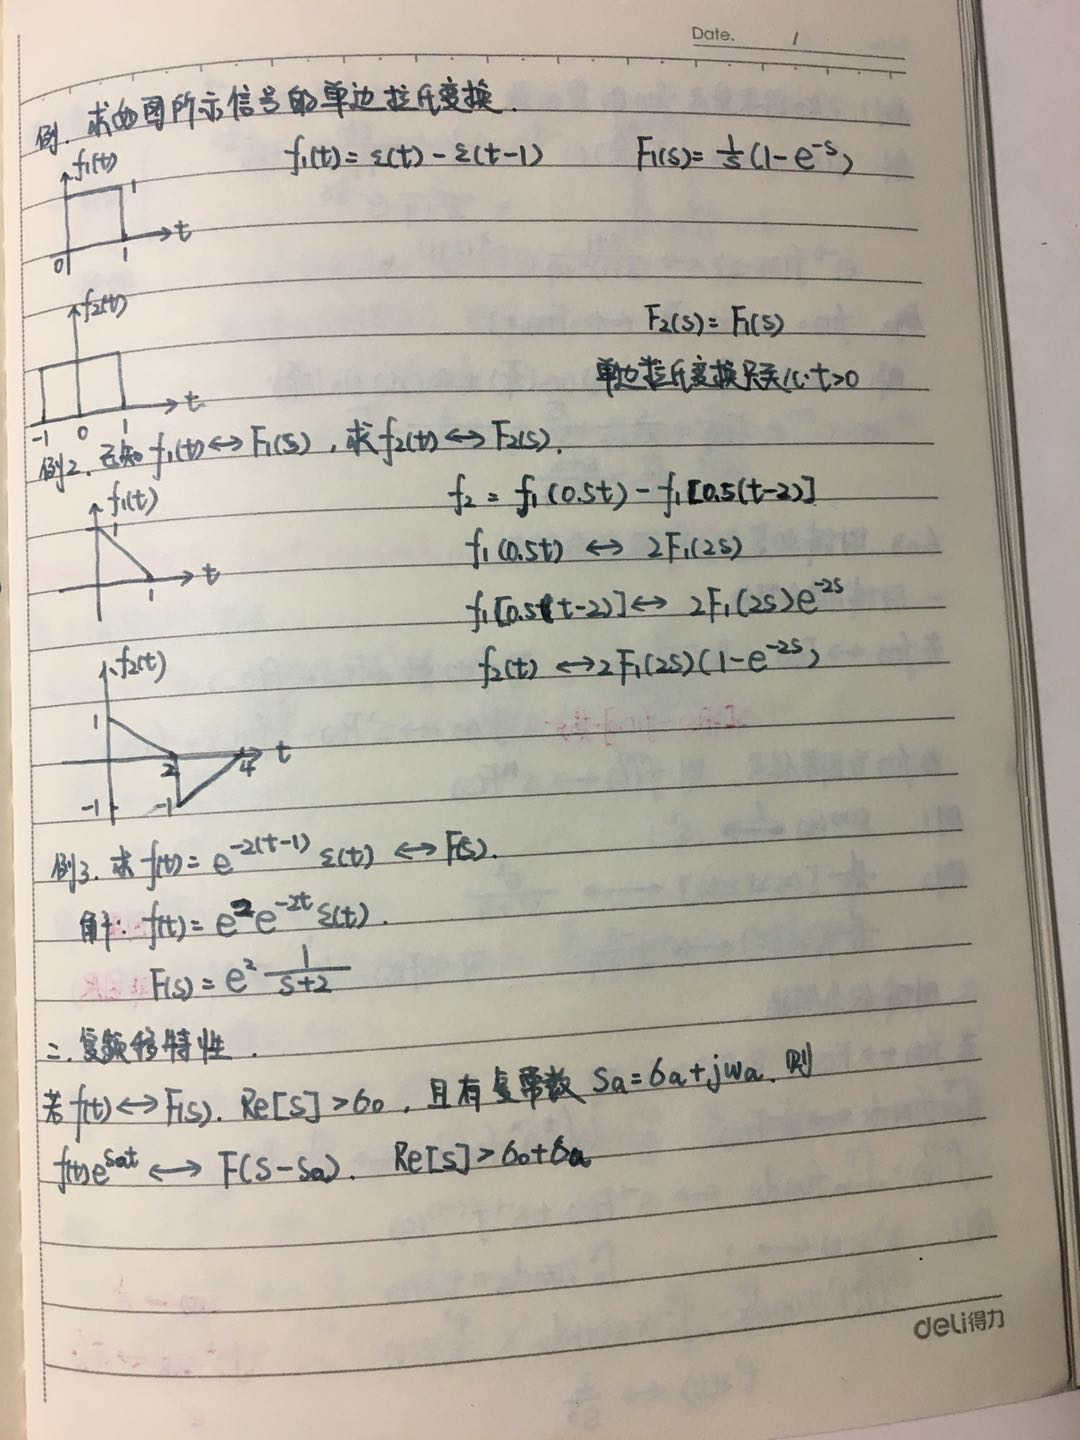 Date. 1
例. 求如图所示信号的单边拉氏变换.
f₁(t)
f₁(t)=ε(t)-ε(t-1)
F₁(s)=1/s(1-e^-s)
1
t
0
1
f₂(t)
F₂(s)=F₁(s)
单边拉氏变换只关心t>0
t
-1 0 1
例2. 已知f₁(t)↔F₁(s), 求f₂(t)↔F₂(s).
f₁(t)
1
f₂ = f₁(0.5t)-f₁[0.5(t-2)]
f₁(0.5t) ↔ 2F₁(2s)
t
1
f₁[0.5(t-2)]↔ 2F₁(2s)e^-2s
f₂(t)
f₂(t) ↔2F₁(2s)(1-e^-2s)
1
2 4 t
-1 -1
例3. 求f(t)=e^-2(t-1) ε(t) ↔ F(s).
解: f(t)=e^2e^-2t ε(t).
F(s)=e^2 1/(s+2)
二. 复频移特性.
若f(t)↔F(s). Re[s]>σ₀, 且有复常数 Sa=σa+jωa. 则
f(t)e^Sat ↔ F(s-Sa). Re[s]>σ₀+σa
deli得力